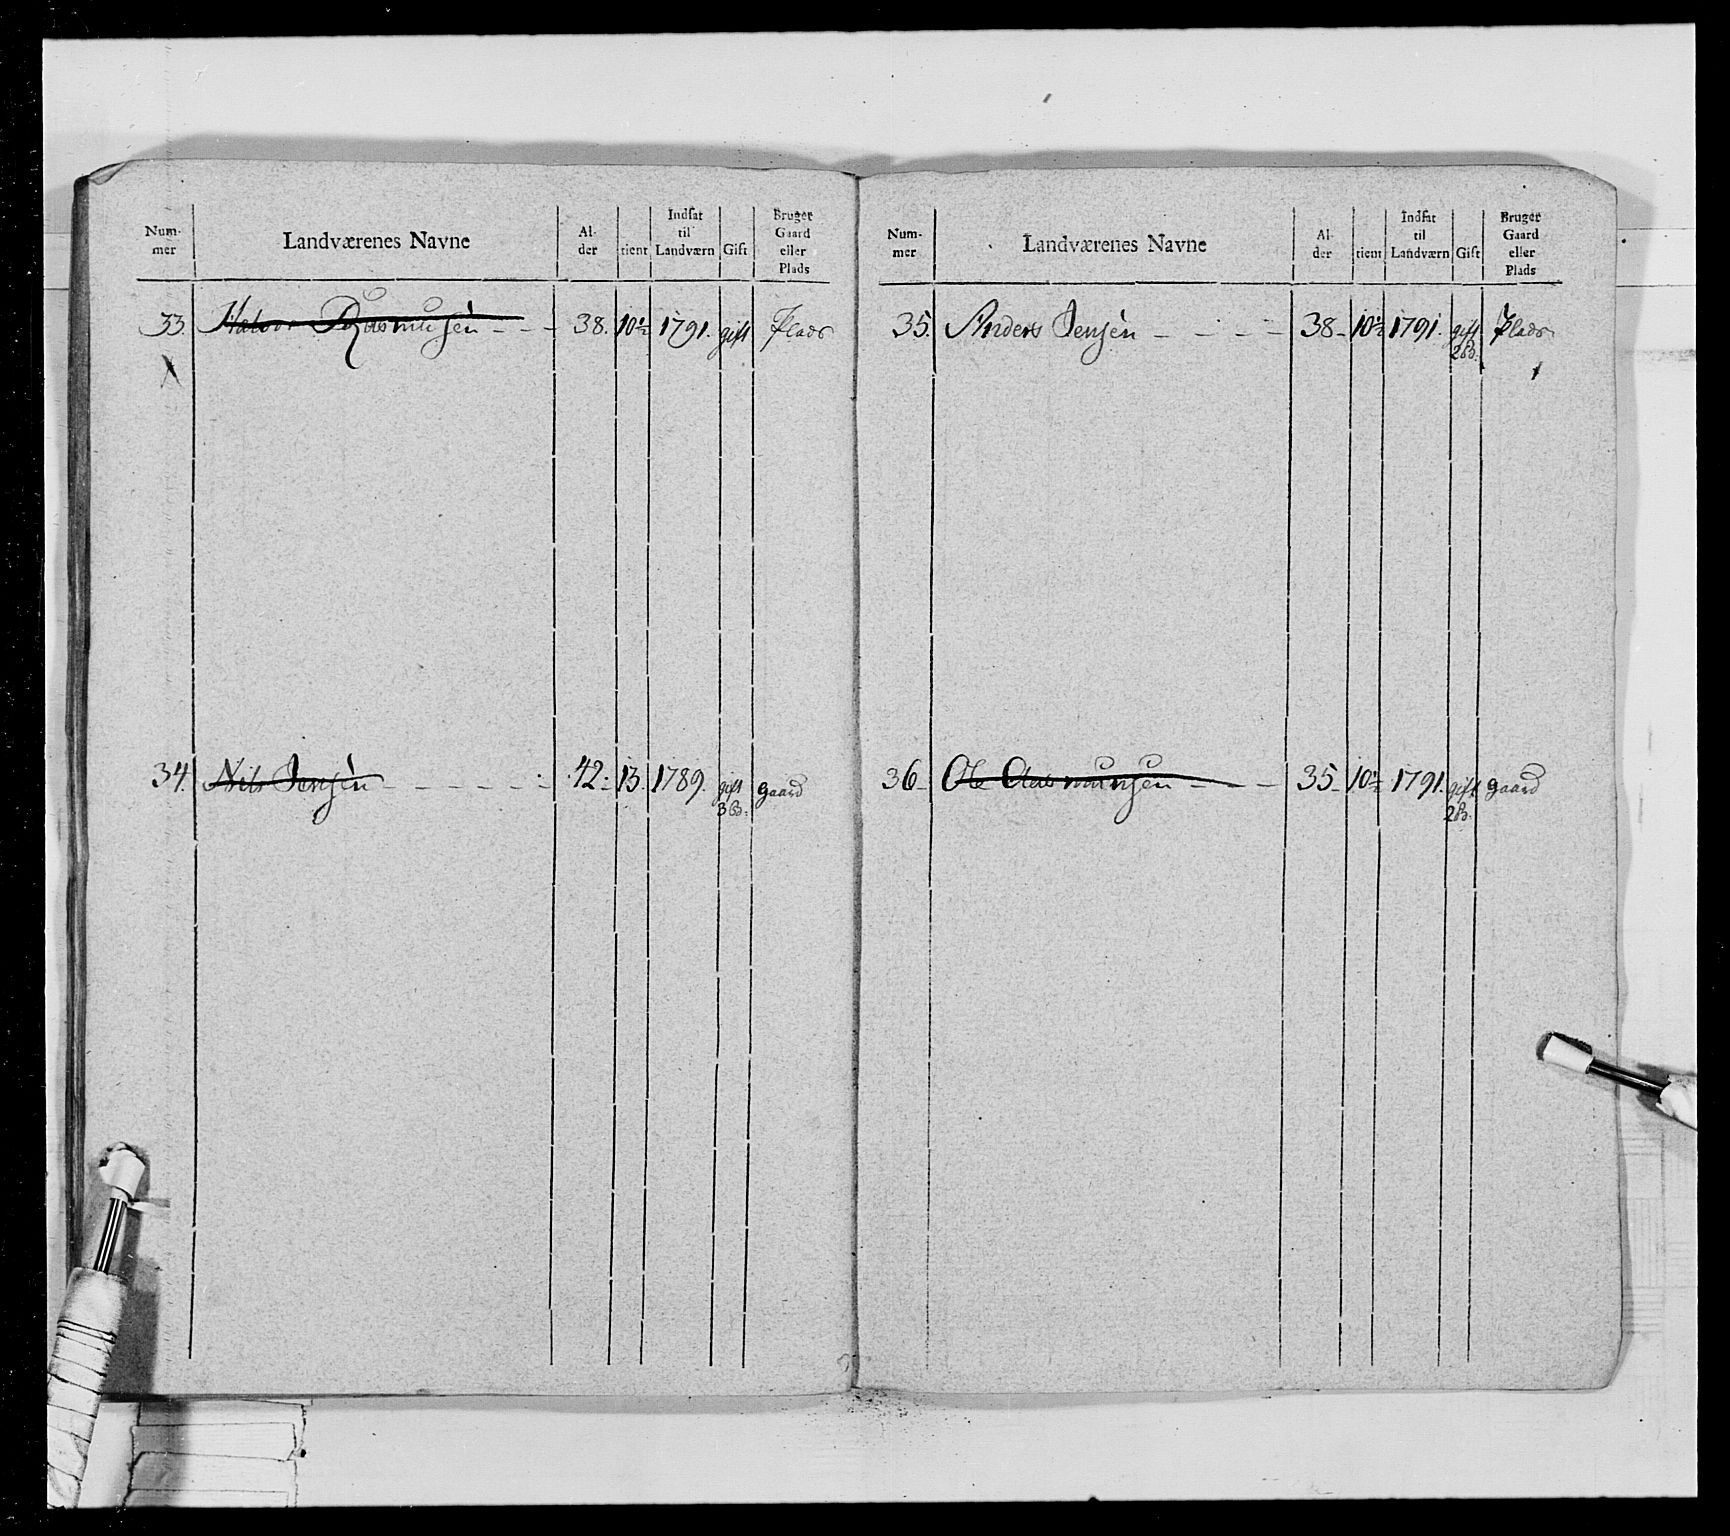 Num- mer Landværenes Navne Al- der tient Indsat til Landværn Gift Bruger Gaard eller Plads
33. Halvor Rasmusen - - - 38. 10½ 1791. gift Plads
34. Nils Jensen - - - - - - 42. 13 1789. gift gaard
3 B.
Num- mer Landværenes Navne Al- der tient Indsat til Landværn Gift Bruger Gaard eller Plads
35. Anders Jensen - - - - 38 - 10½ 1791. gift Plads
2 B.
36 - Ole Aasmunsen - - - 35 - 10½ 1791. gift gaard
2 B.